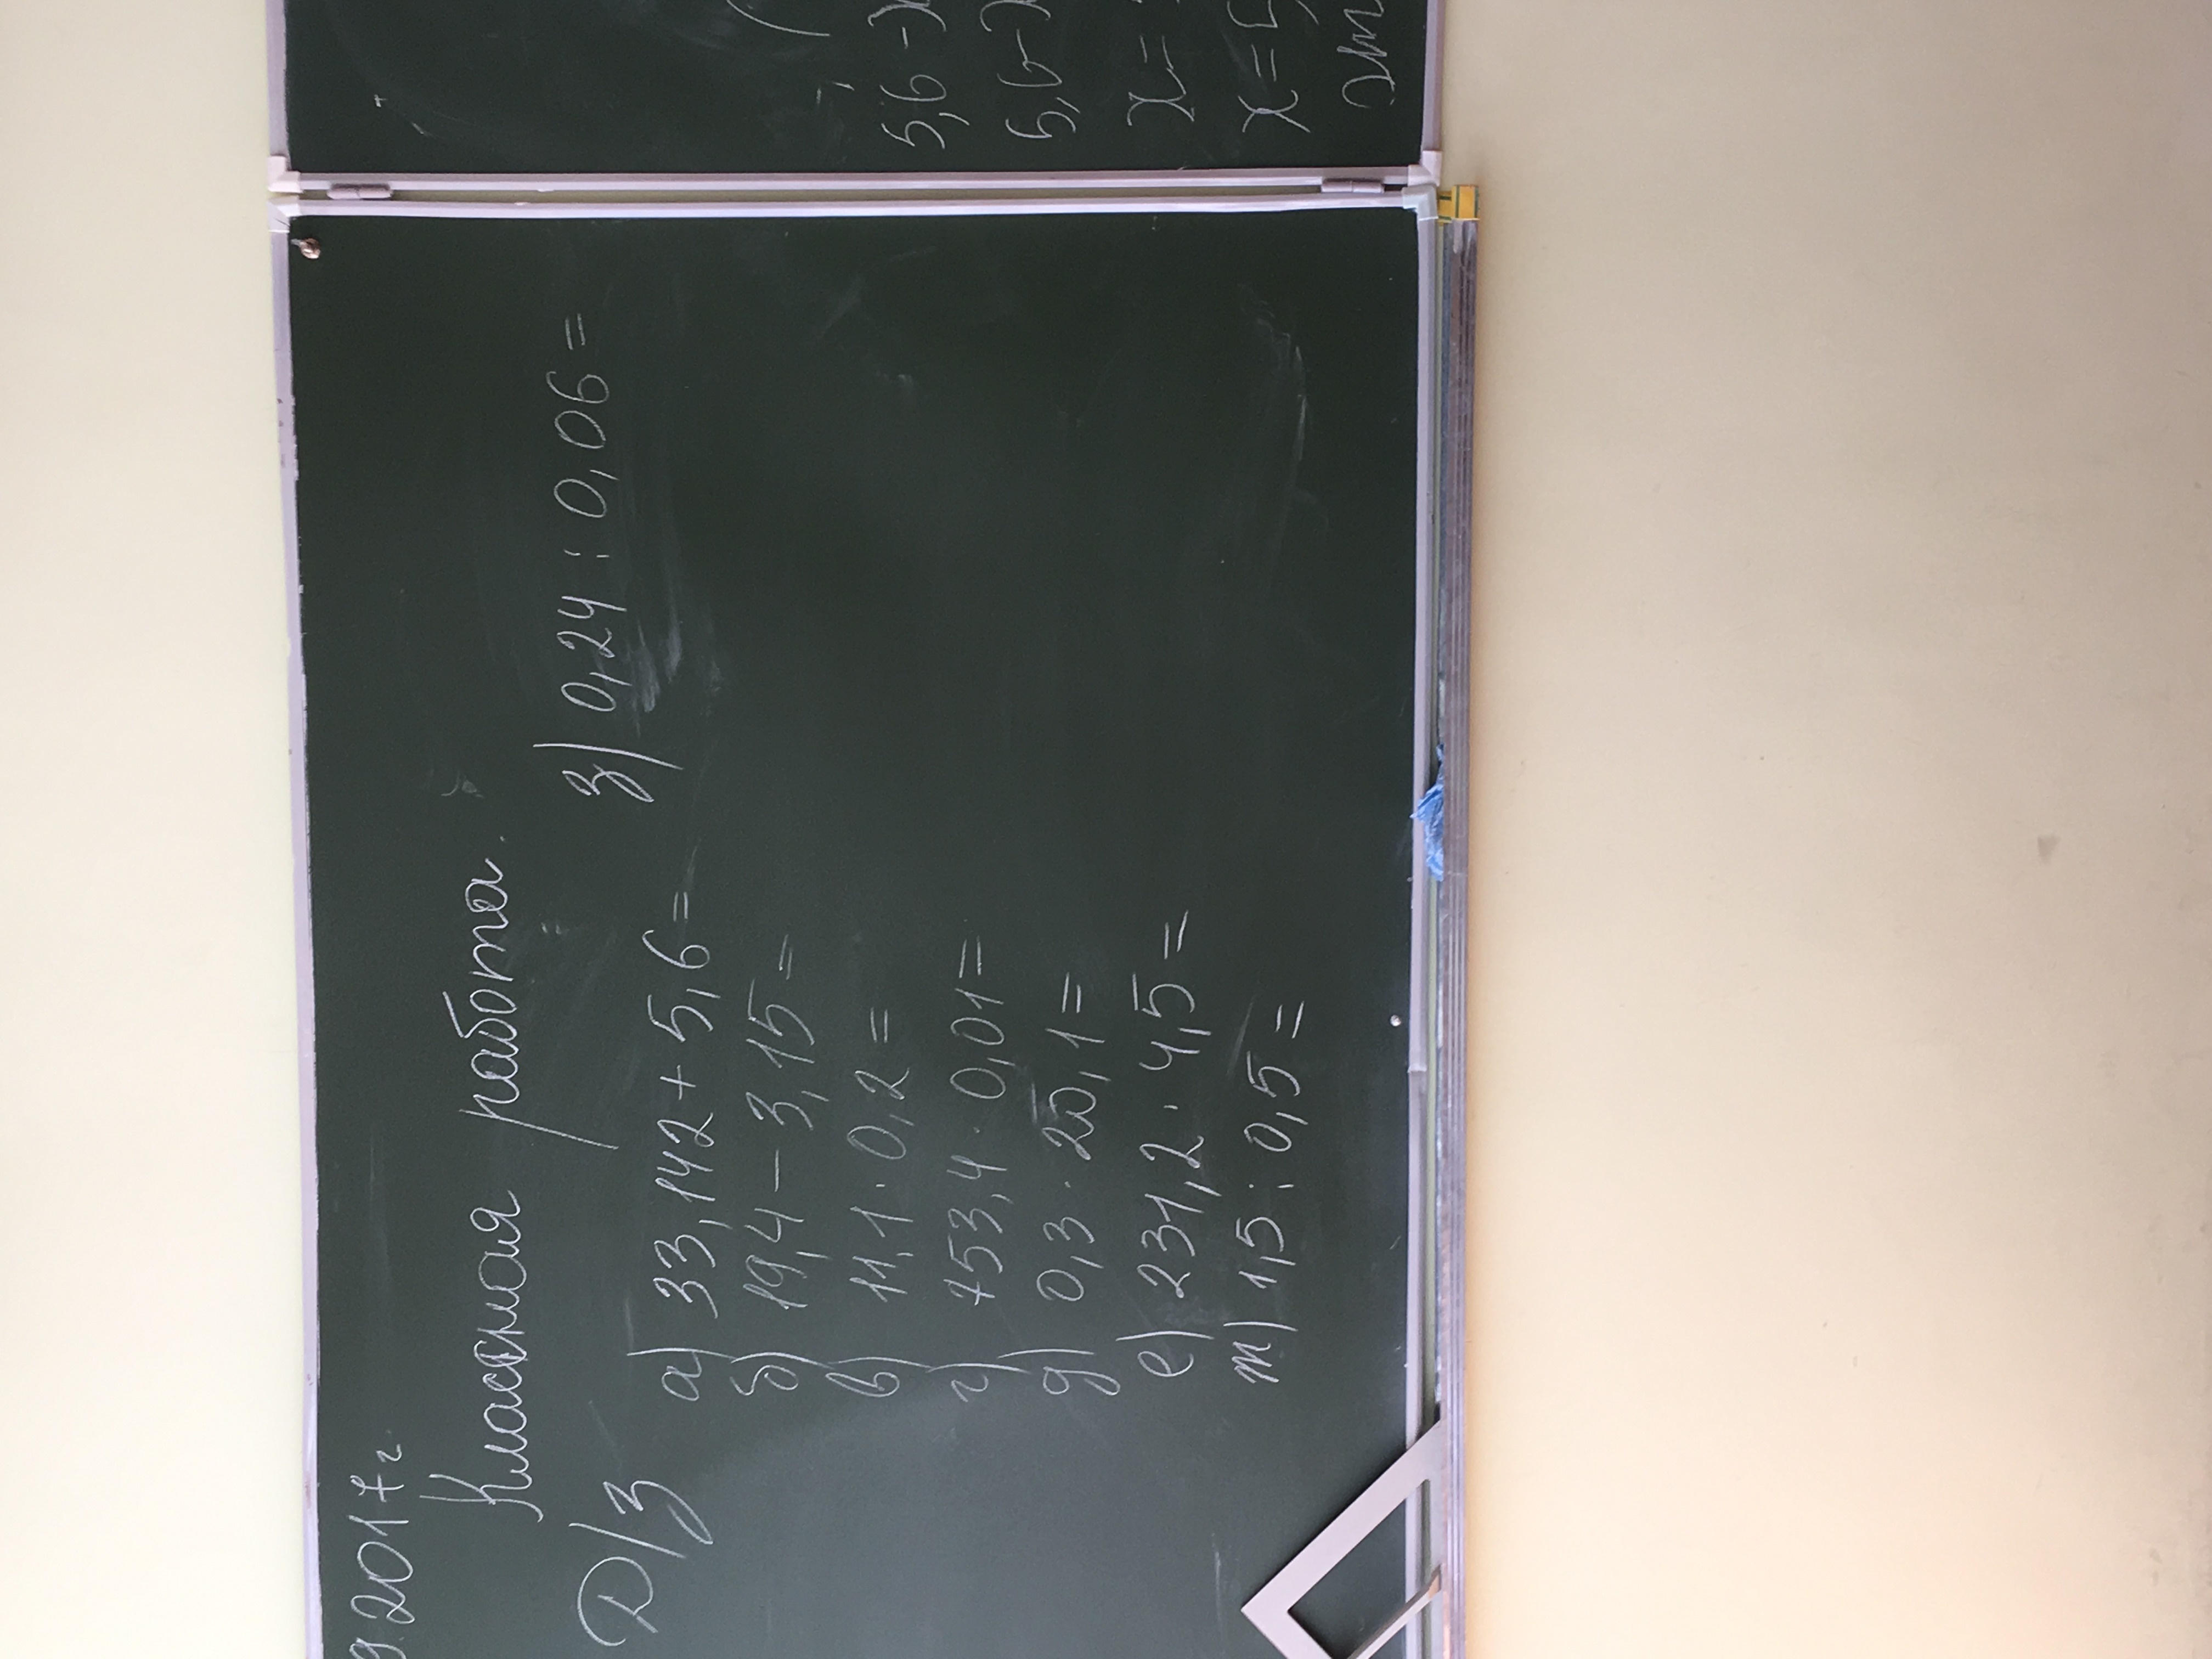 9.2017г.
Классная работа.
Д/З
а) 33,142 + 5,6 =
б) 19,4 – 3,15 =
в) 11,1 · 0,2 =
г) 753,4 · 0,01 =
д) 0,3 · 20,1 =
е) 231,2 · 4,5 =
ж) 1,5 : 0,5 =
з) 0,24 : 0,06 =
5,6 –
5,6 –
x =
x = 5